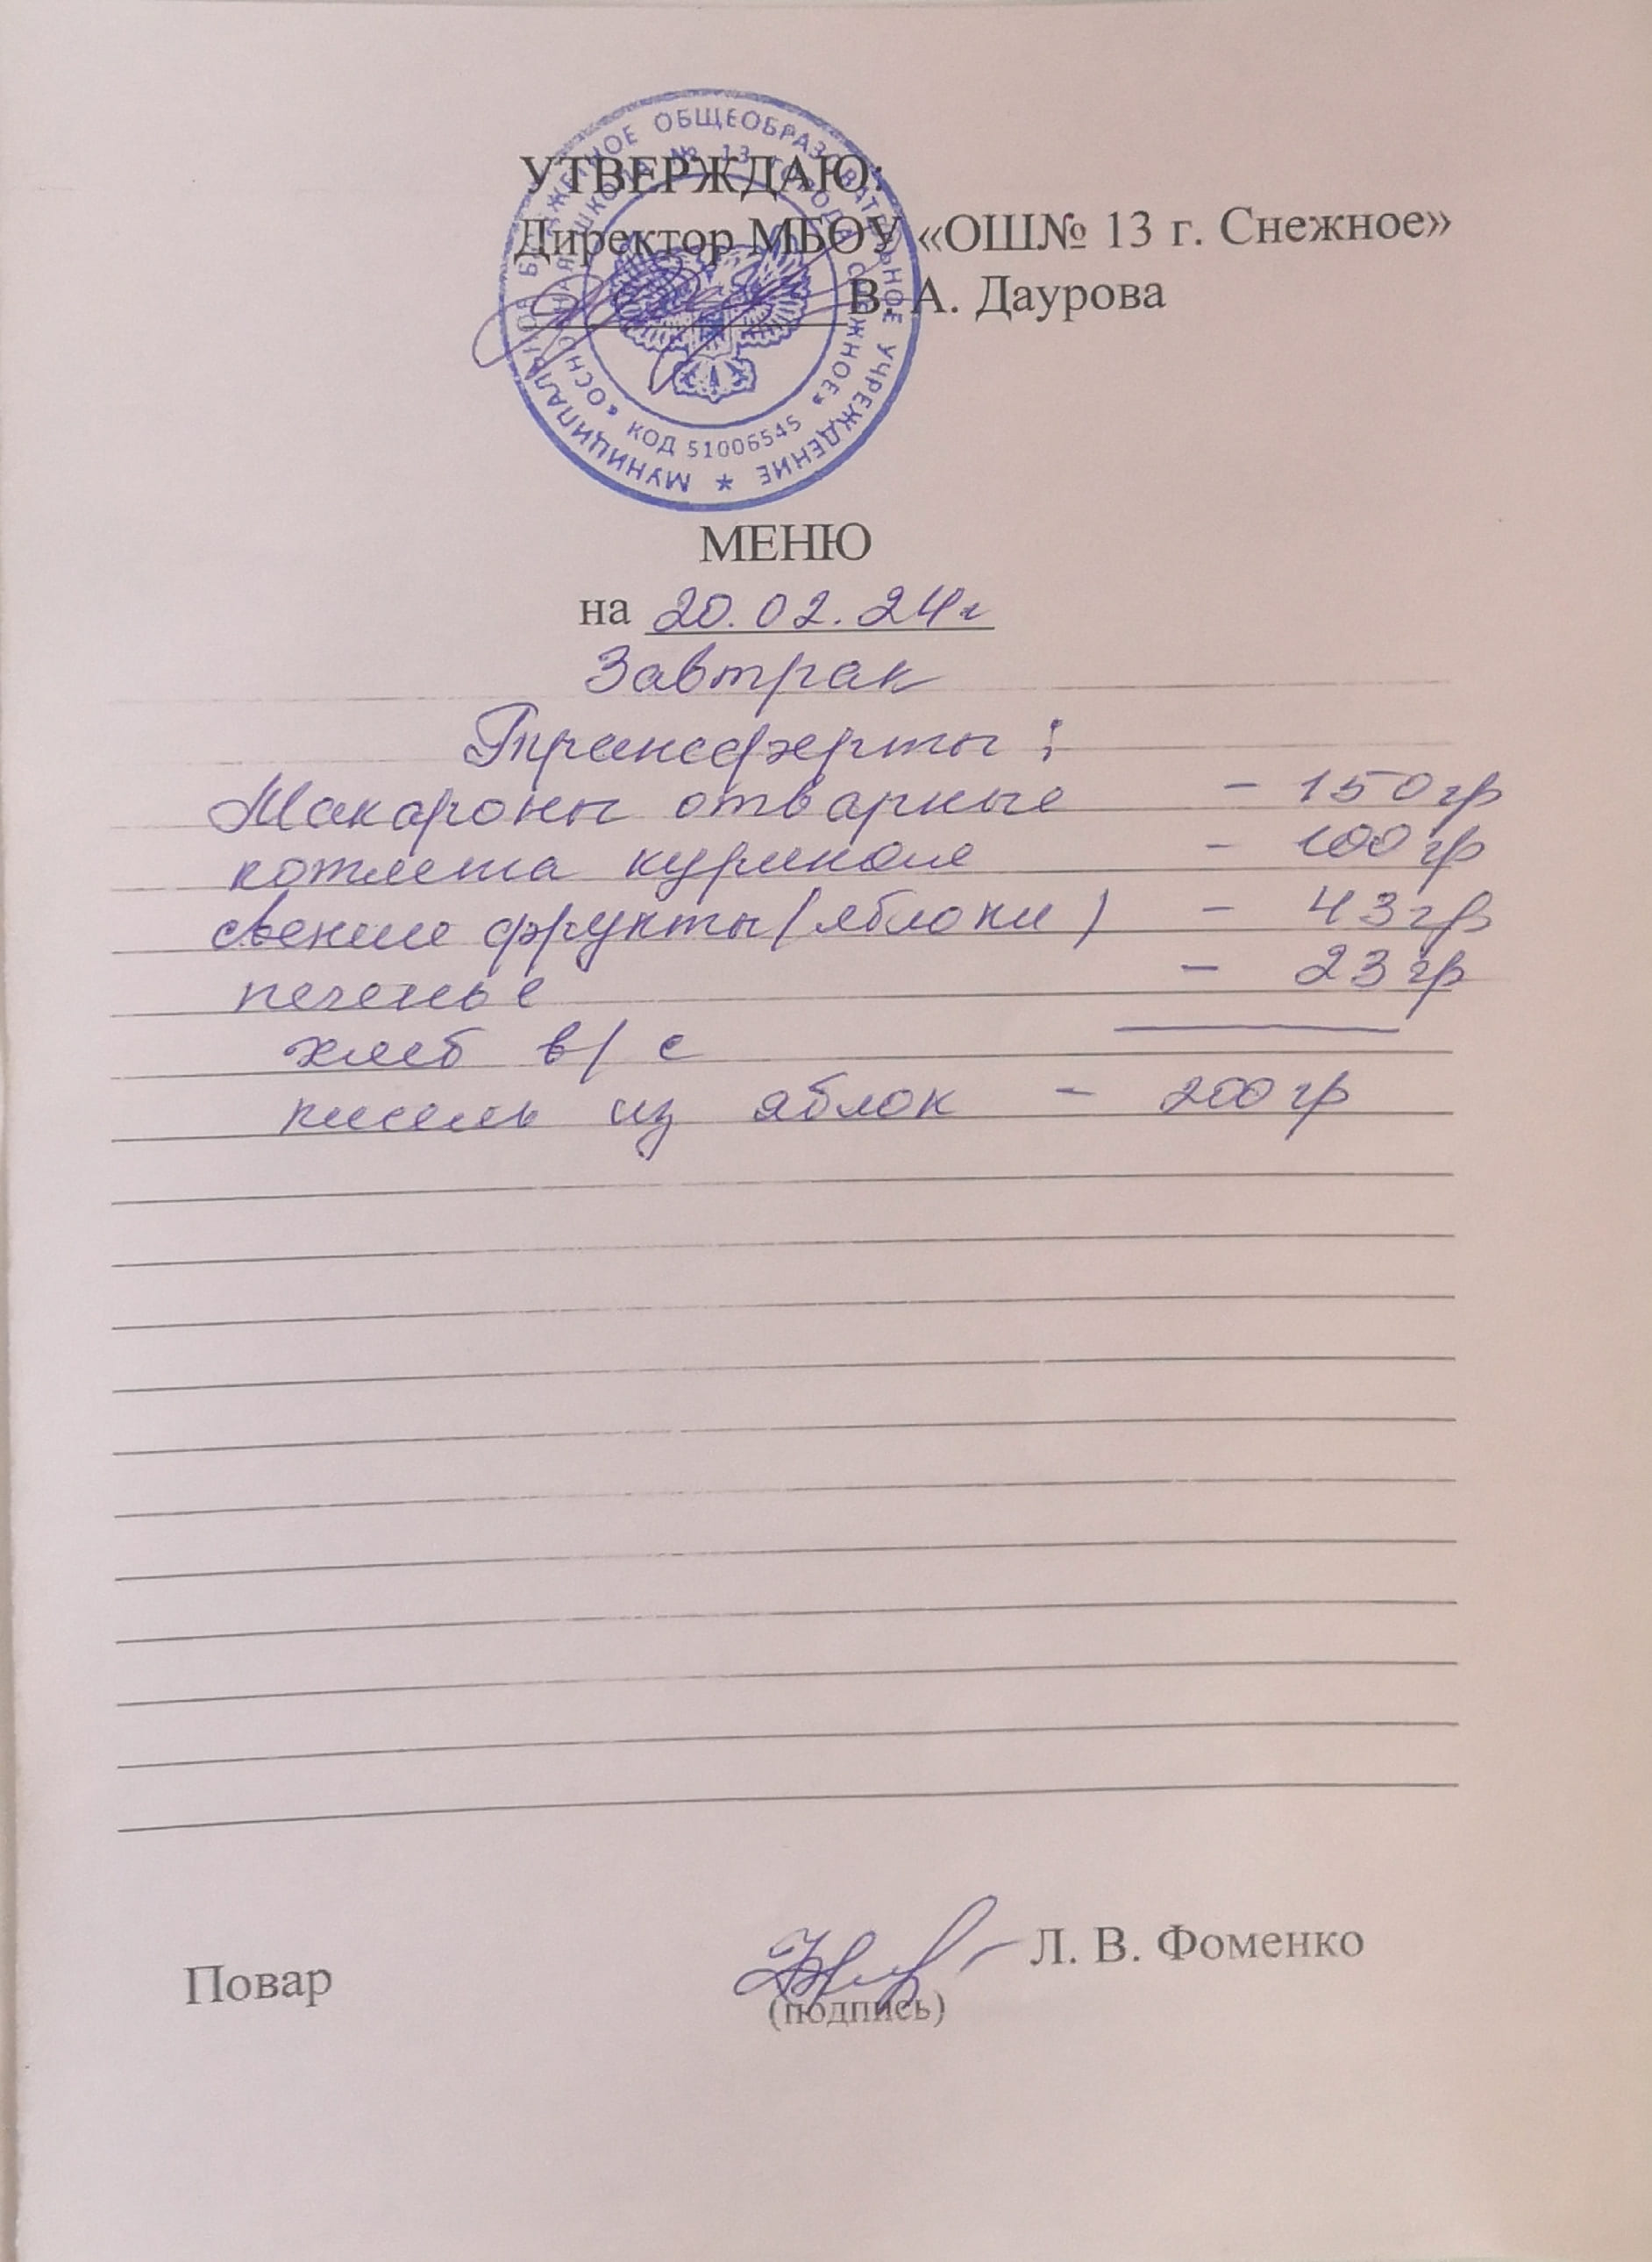 УТВЕРЖДАЮ:
Директор МБОУ «ОШ№ 13 г. Снежное»
В. А. Даурова
МУНИЦИПАЛЬНОЕ БЮДЖЕТНОЕ ОБЩЕОБРАЗОВАТЕЛЬНОЕ УЧРЕЖДЕНИЕ *
«ОСНОВНАЯ ШКОЛА № 13 ГОРОДА СНЕЖНОЕ»
КОД 51006545
МЕНЮ
на 20.02.24г
Завтрак
Трансферты:
Макароны отварные - 150гр
котлета куриная - 100 гр
свежие фрукты (яблоки) - 43гр
печенье - 23 гр
хлеб в/с
кисель из яблок - 200 гр
Повар
Л. В. Фоменко
(подпись)